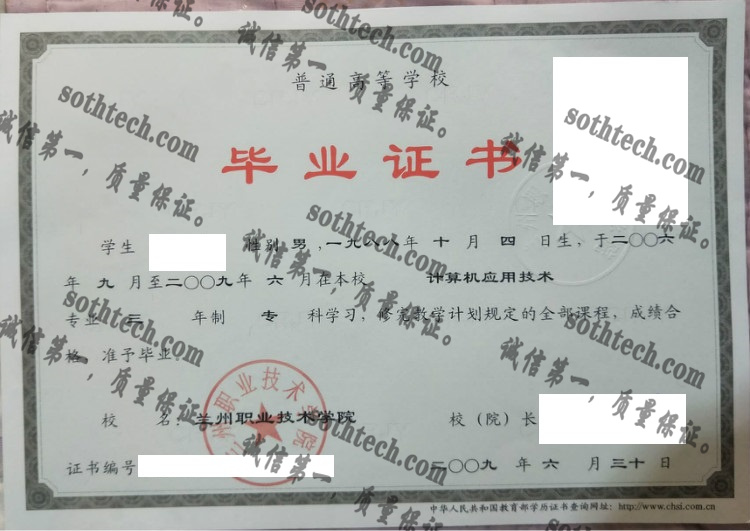 普通高等学校
毕业证书
学生 性别 男 ,一九八八年 十 月 四 日生, 于二〇〇六
年 九 月至二〇〇九年 六 月在本校 计算机应用技术
专业 三 年制 专 科学习, 修完教学计划规定的全部课程, 成绩合
格, 准予毕业.
校 名: 兰州职业技术学院 校(院)长
证书编号 二〇〇九 年 六 月 三十 日
中华人民共和国教育部学历证书查询网址: http://www.chsi.com.cn
兰州职业技术学院
sothtech.com
诚信第一, 质量保证。
sothtech.com
诚信第一, 质量保证。
sothtech.com
诚信第一, 质量保证。
sothtech.com
诚信第一, 质量保证。
sothtech.com
诚信第一, 质量保证。
sothtech.com
诚信第一, 质量保证。
sothtech.com
诚信第一, 质量保证。
sothtech.com
诚信第一, 质量保证。